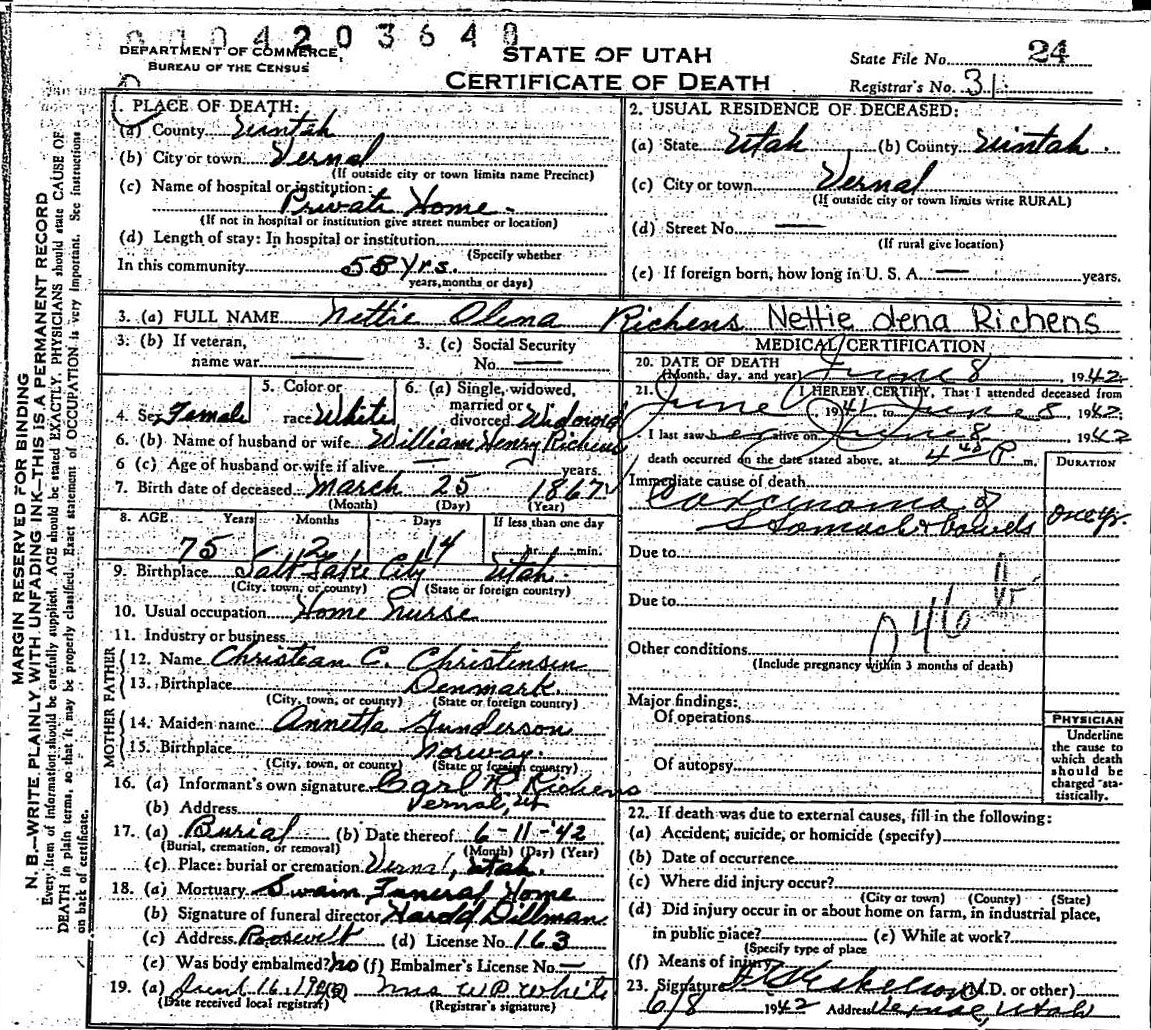 0004203640
DEPARTMENT OF COMMERCE
BUREAU OF THE CENSUS
STATE OF UTAH
CERTIFICATE OF DEATH
State File No. 24
Registrar's No. 31
MARGIN RESERVED FOR BINDING
N. B.—WRITE PLAINLY WITH UNFADING INK—THIS IS A PERMANENT RECORD
Every item of information should be carefully supplied. AGE should be stated EXACTLY. PHYSICIANS should state CAUSE OF
DEATH in plain terms, so that it may be properly classified. Exact statement of OCCUPATION is very important. See instructions
on back of certificate.
1. PLACE OF DEATH:
(a) County Uintah
(b) City or town Vernal
(If outside city or town limits name Precinct)
(c) Name of hospital or institution:
Private Home
(If not in hospital or institution give street number or location)
(d) Length of stay: In hospital or institution
(Specify whether
In this community 58 Yrs.
years, months or days)
2. USUAL RESIDENCE OF DECEASED:
(a) State Utah (b) County Uintah.
(c) City or town Vernal
(If outside city or town limits write RURAL)
(d) Street No. —
(If rural give location)
(e) If foreign born, how long in U. S. A. — years.
3. (a) FULL NAME Nettie Olena Richens Nettie olena Richens
3. (b) If veteran,
name war —
3. (c) Social Security
No. —
4. Sex Female
5. Color or
race White
6. (a) Single, widowed,
married or
divorced Widowed
6. (b) Name of husband or wife William Henry Richens
6 (c) Age of husband or wife if alive — years.
7. Birth date of deceased March 25 1867
(Month) (Day) (Year)
8. AGE Years Months Days If less than one day
75 2 14 hr. min.
9. Birthplace Salt Lake City Utah.
(City, town, or county) (State or foreign country)
10. Usual occupation Home Nurse
11. Industry or business
FATHER
12. Name Christian C. Christensen
13. Birthplace Denmark.
(City, town, or county) (State or foreign country)
MOTHER
14. Maiden name Annetta Gunderson
15. Birthplace Norway.
(City, town, or county) (State or foreign country)
16. (a) Informant's own signature Carl R. Richens
(b) Address Vernal, Ut
17. (a) Burial (b) Date thereof 6-11-'42
(Burial, cremation, or removal) (Month) (Day) (Year)
(c) Place: burial or cremation Vernal, Utah.
18. (a) Mortuary Swain Funeral Home
(b) Signature of funeral director Harold Dillman
(c) Address Roosevelt (d) License No. 163
(e) Was body embalmed? no (f) Embalmer's License No. —
19. (a) June 16, 1942 Mrs W P White
(Date received local registrar) (Registrar's signature)
MEDICAL CERTIFICATION
20. DATE OF DEATH
(Month, day, and year) June 8 1942
21. I HEREBY CERTIFY, That I attended deceased from
June 1941 to June 8, 1942;
I last saw her alive on June 8 1942
death occurred on the date stated above, at 4 40 P m.
DURATION
Immediate cause of death
Carcinoma of
Stomach & bowels one yr.
Due to
Due to
046
Other conditions
(Include pregnancy within 3 months of death)
Major findings:
Of operations
Of autopsy
PHYSICIAN
Underline
the cause to
which death
should be
charged sta-
tistically.
22. If death was due to external causes, fill in the following:
(a) Accident, suicide, or homicide (specify)
(b) Date of occurrence
(c) Where did injury occur?
(City or town) (County) (State)
(d) Did injury occur in or about home on farm, in industrial place,
in public place? (e) While at work?
(Specify type of place
(f) Means of injury
23. Signature (M.D. or other)
6/8 1942 Address Vernal, Utah